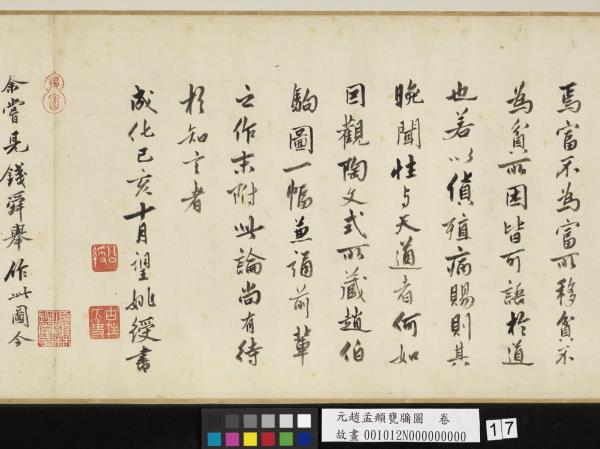 焉富不為富所移貧不
為貧所困皆可語於道
也若以貨殖病賜則其
晚聞性与天道者何如
因觀陶文式所藏趙伯
駒圖一幅並誦前輩
之作末附此論尚有待
於知言者
成化己亥十月望姚綬書
余嘗見錢舜舉作此圖今
元趙孟頫甕牖圖 卷
故畫 001012N000000000
17